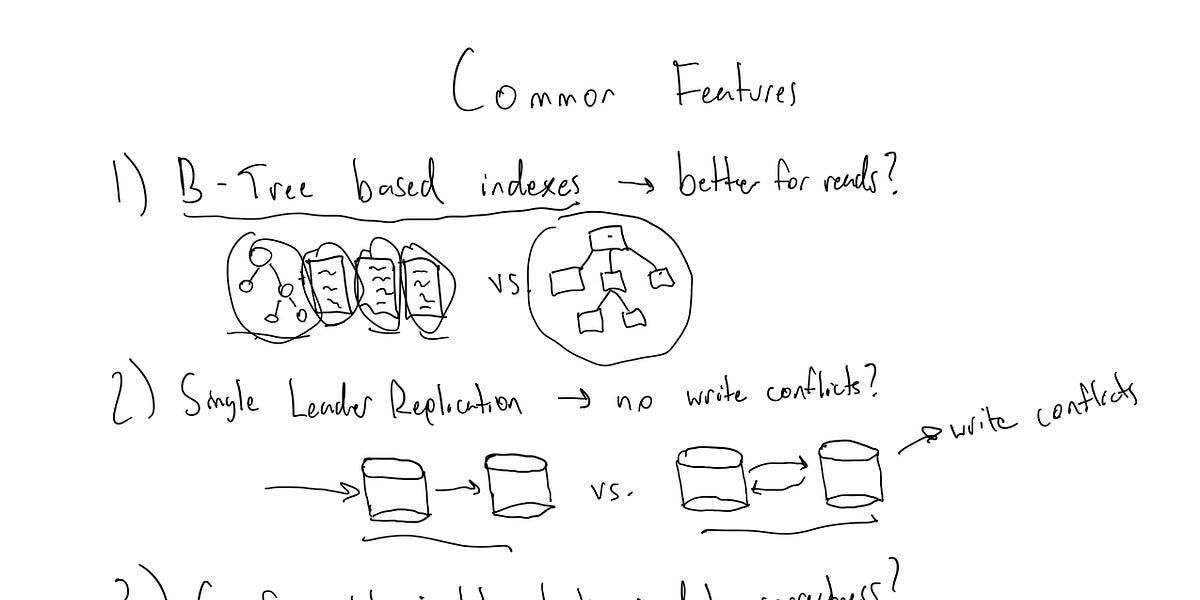 Common Features
1) B-Tree based indexes → better for reads?
vs.
2) Single Leader Replication → no write conflicts?
write conflicts
vs.